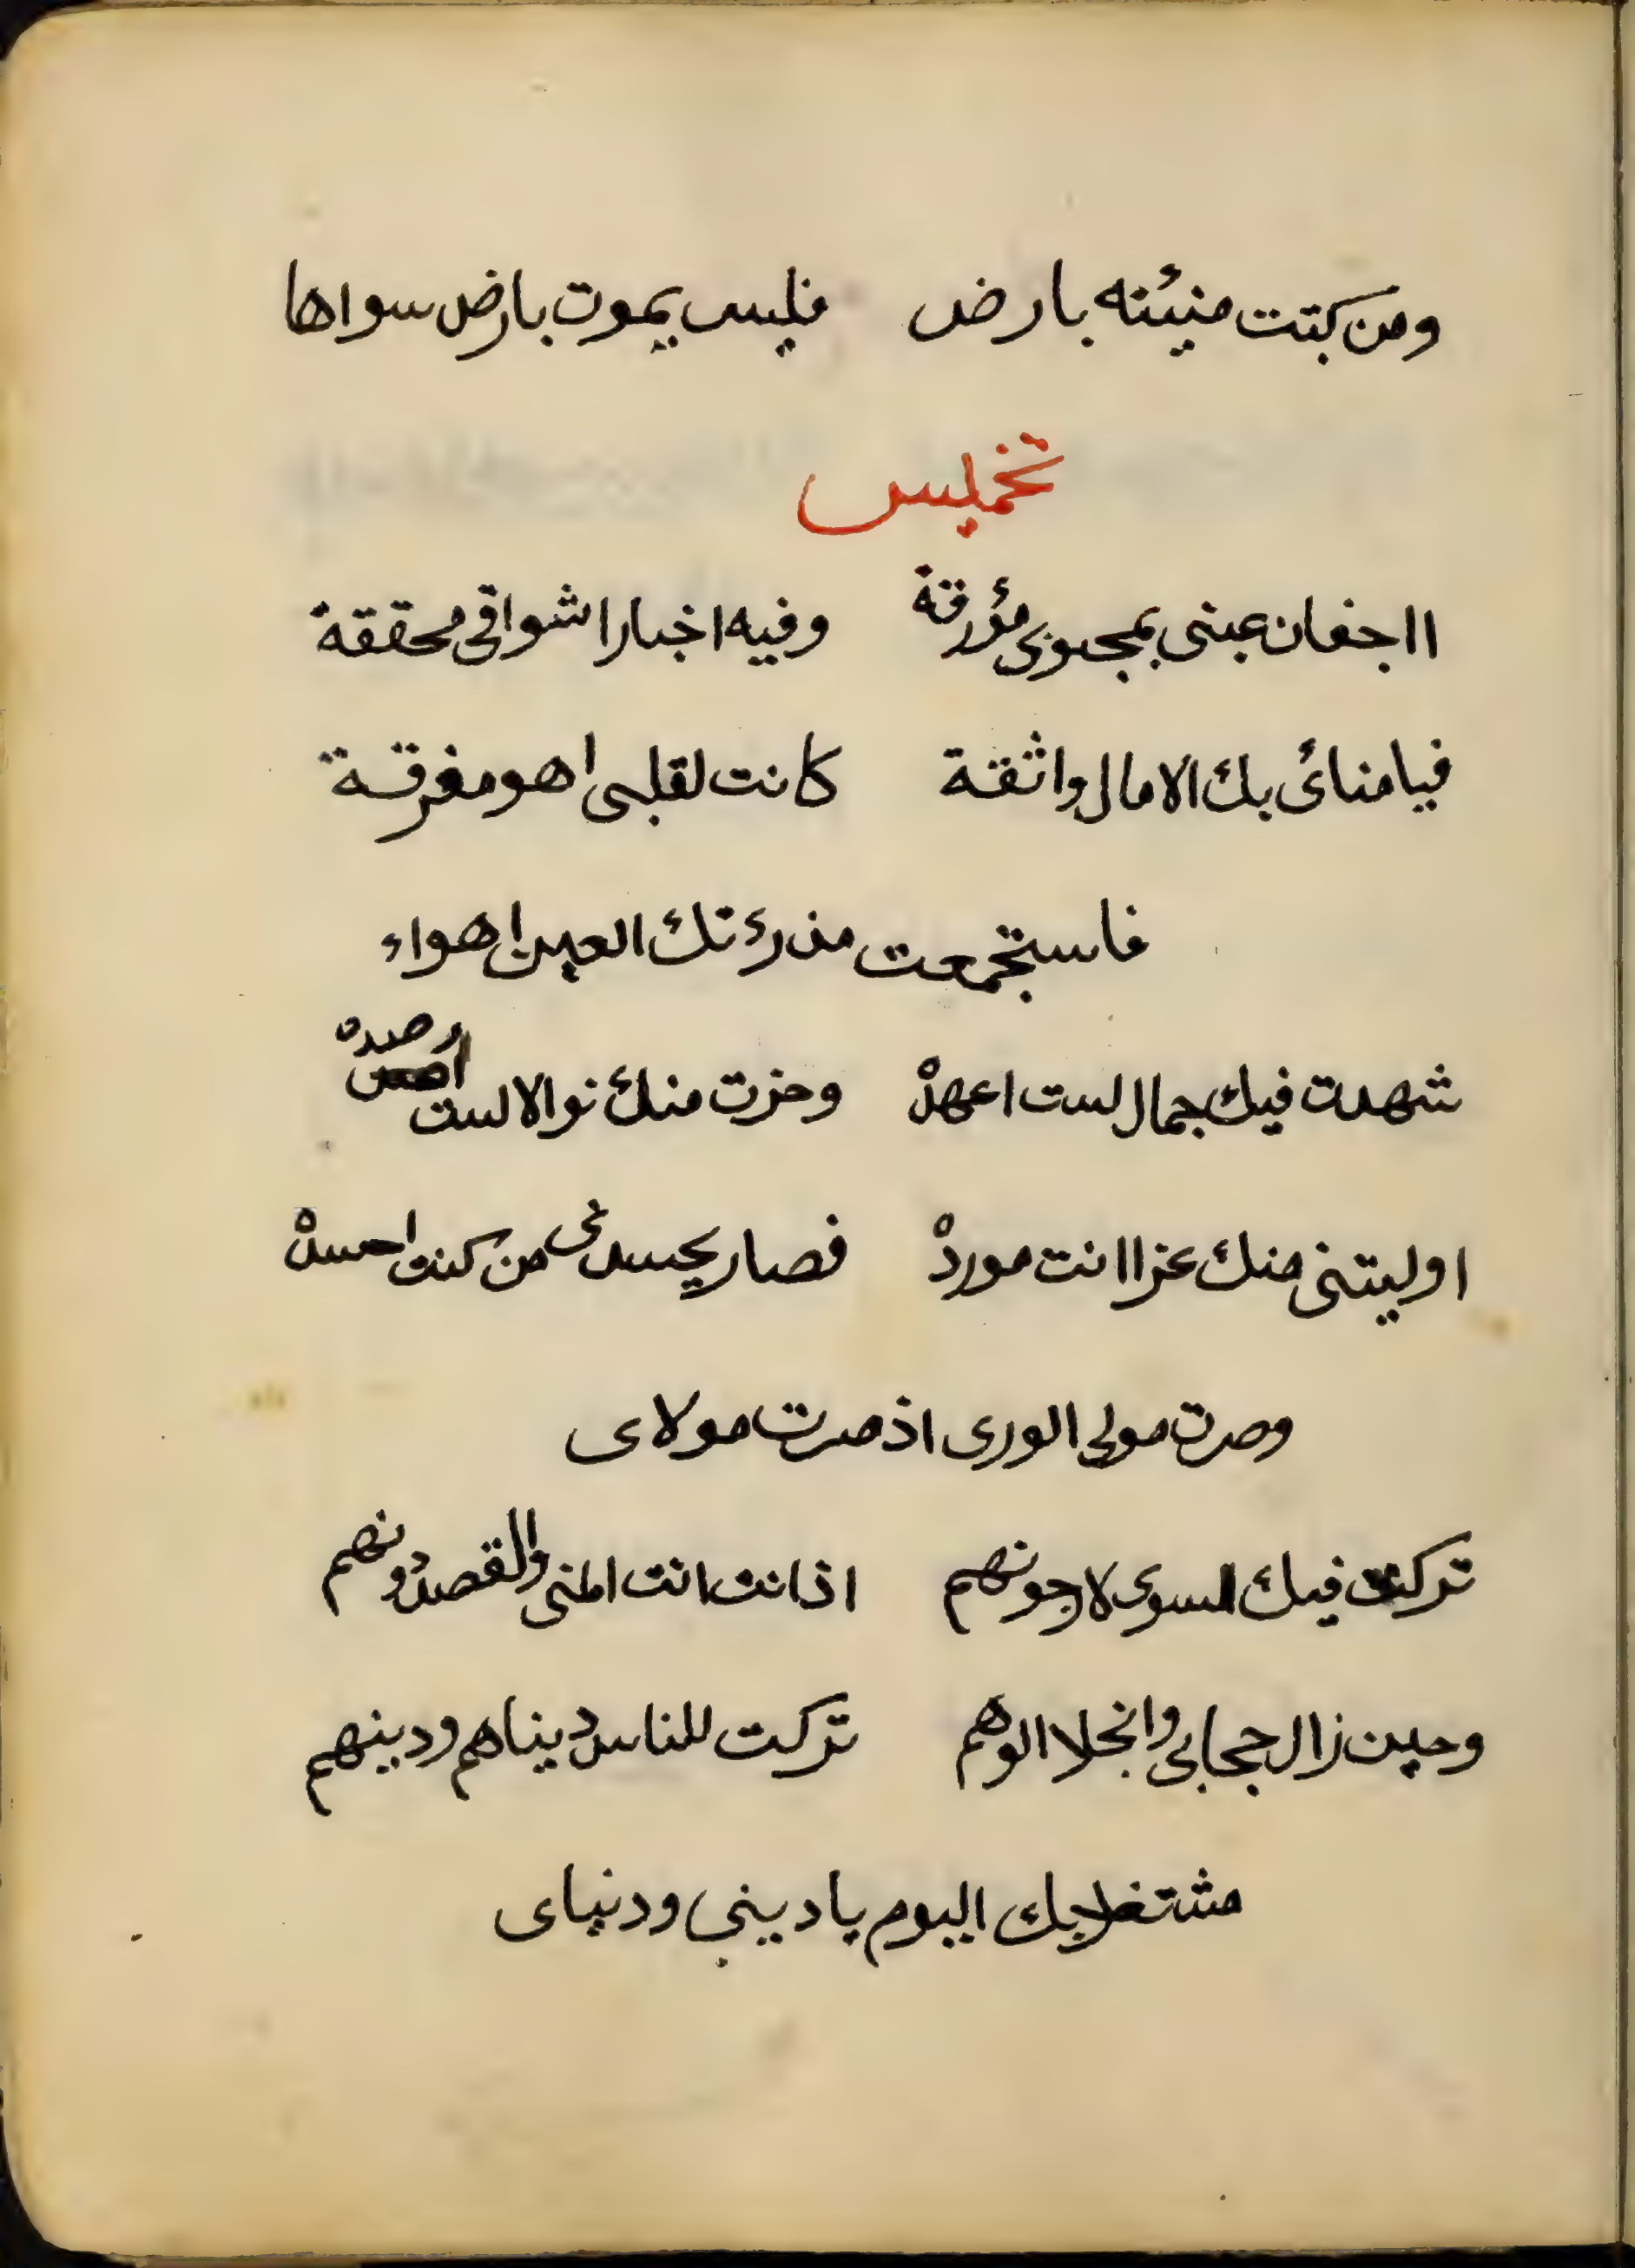 ومن كتبت منيئته بارض فليس يموت بارض سواها
تخميس
ااجفان عينى بمحبوبى مؤرقة وفيه اخبار اشواقى محققة
فيا منائى بك الامال واثقة كانت لقلبى اهو مفرقة
فاستجمعت مذ رءتك العين اهواء
شهدت فيك جمال لست اعهدهْ وحزت منك نوالا لست ارصدهْ
اوليتنى منك عزا انت موردهْ فصار يحسدنى من كنت احسدهْ
وصرت مولى الورى اذ صرت مولاى
تركت فيك السوى لارجونهم اذ انت انت المنى والقصد دونهم
وحين زال حجابى وانجلا الوهم تركت للناس ديناهم ودينهم
مشتغلا بك اليوم يا دينى ودنياى